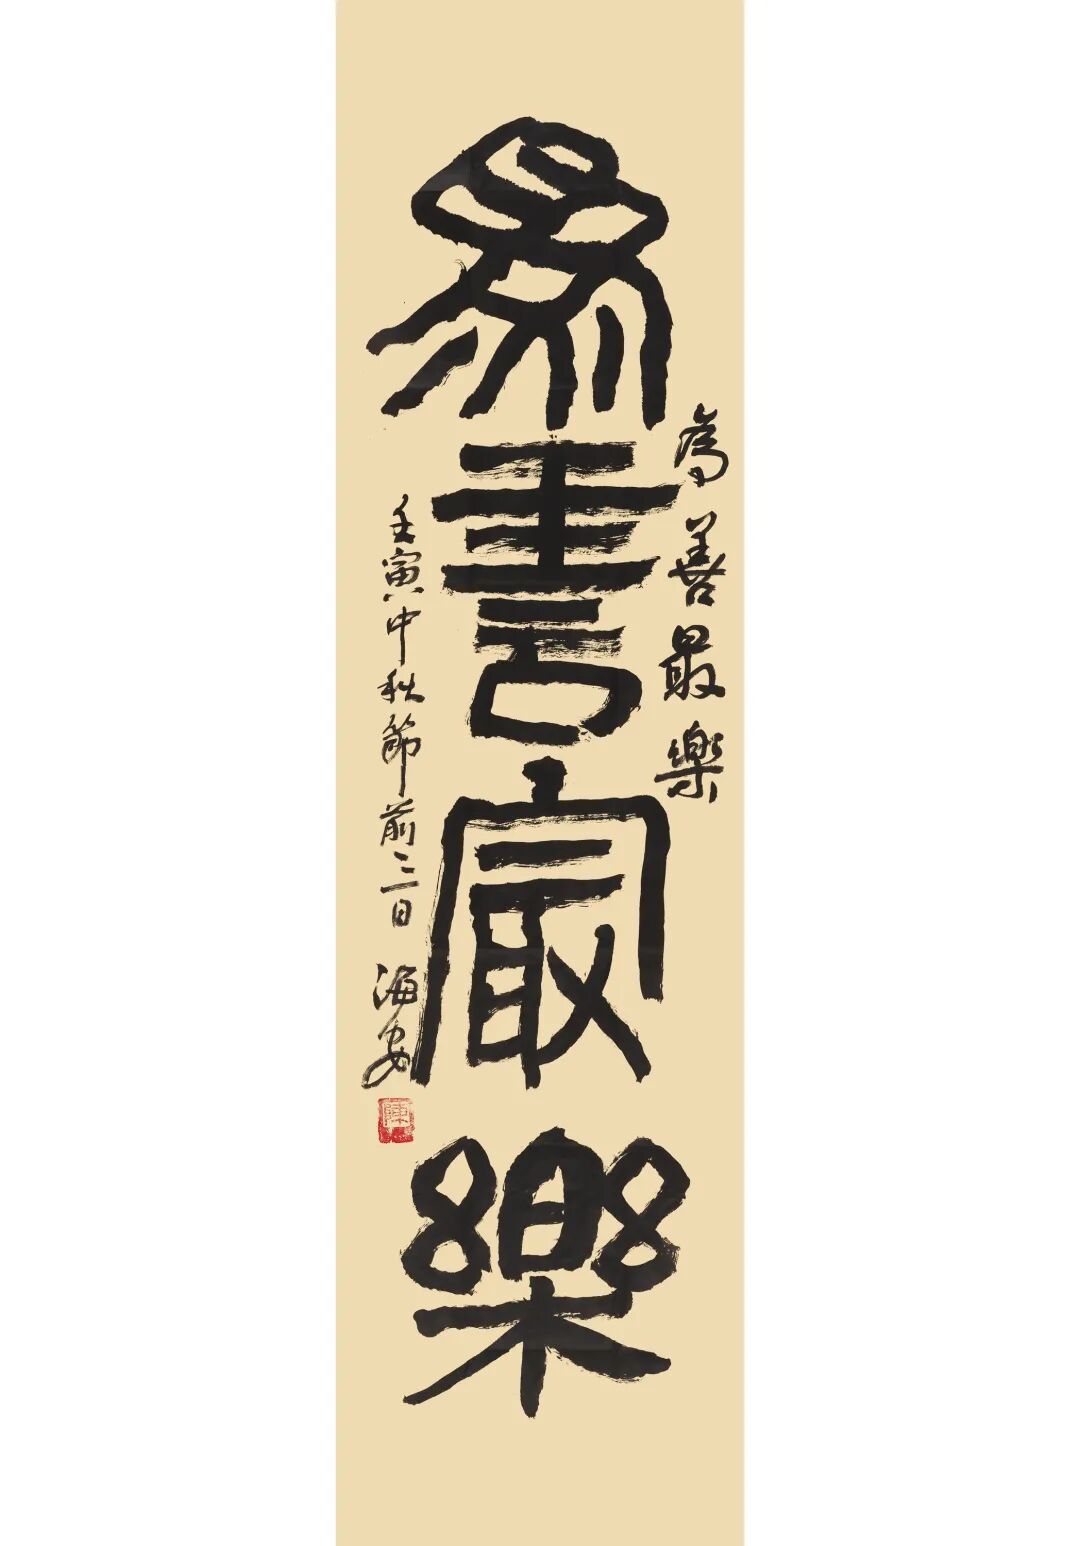 為善最樂
為善最樂
壬寅中秋節前三日 海安
陳